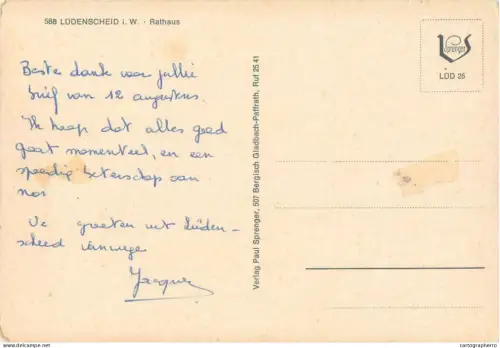 588 LÜDENSCHEID i. W. · Rathaus
Beste dank voor jullie
brief van 12 augustus.
Ik hoop dat alles goed
gaat momenteel, en een
spoedig beterschap aan
De groeten uit Lüden-
scheid vanwege
Jacques
Verlag Paul Sprenger, 507 Bergisch Gladbach-Paffrath, Ruf 25 41
Sprenger
LDD 25
www.delcampe.net
cartographerro